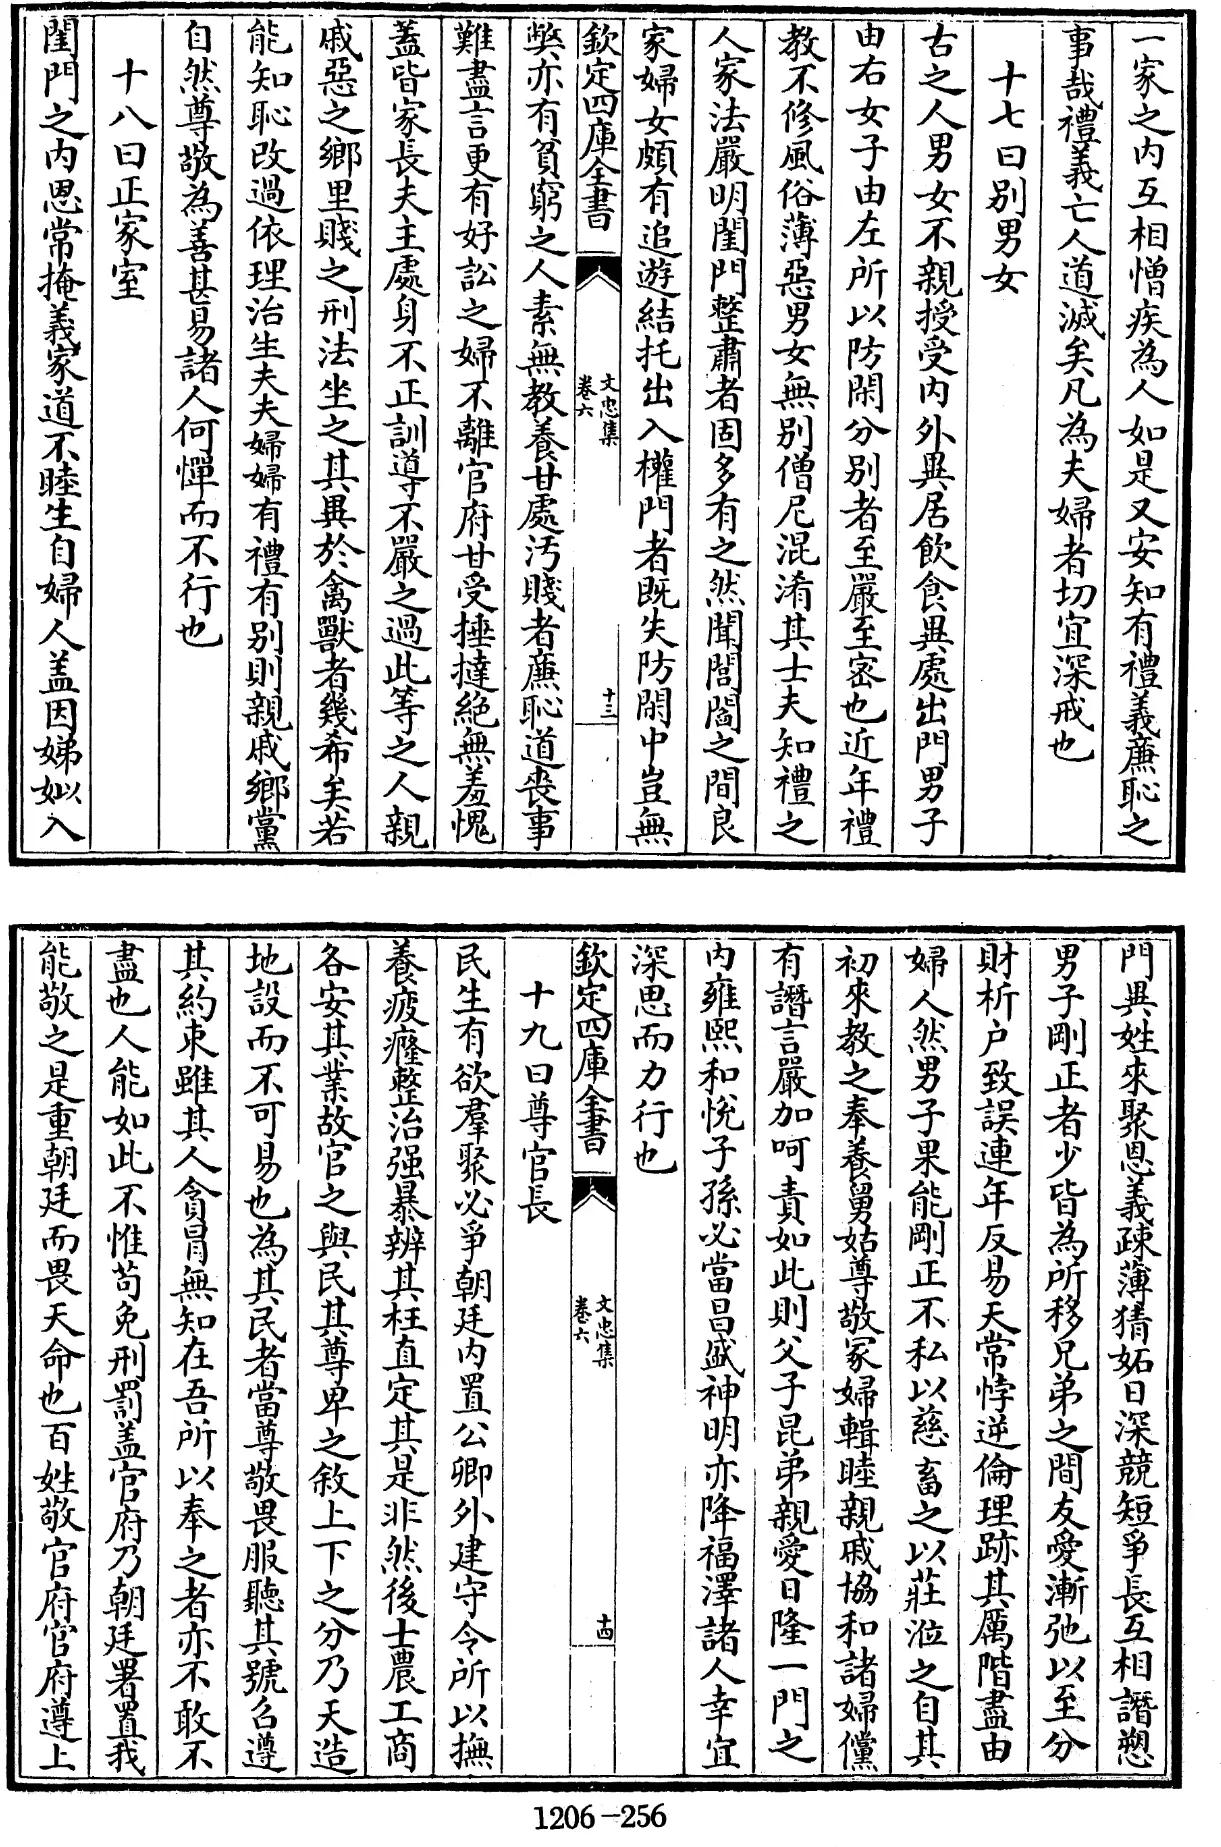 一家之内互相憎疾為人如是又安知有禮義廉恥之
事哉禮義亡人道滅矣凡為夫婦者切宜深戒也
十七曰别男女
古之人男女不親授受内外異居飲食異處出門男子
由右女子由左所以防閑分别者至嚴至密也近年禮
教不修風俗薄惡男女無别僧尼混淆其士夫知禮之
人家法嚴明閨門整肅者固多有之然聞閭閻之間良
家婦女頗有追遊結托出入權門者既失防閑中豈無
欽定四庫全書
文忠集
卷六
十三
弊亦有貧窮之人素無教養甘處汚賤者廉恥道喪事
難盡言更有好訟之婦不離官府甘受捶撻絶無羞愧
蓋皆家長夫主處身不正訓導不嚴之過此等之人親
戚惡之鄉里賤之刑法坐之其異於禽獸者幾希矣若
能知恥改過依理治生夫夫婦婦有禮有别則親戚鄉黨
自然尊敬為善甚易諸人何憚而不行也
十八曰正家室
閨門之内恩常掩義家道不睦生自婦人盖因娣姒入
門異姓來聚恩義疎薄猜妬日深競短爭長互相譖愬
男子剛正者少皆為所移兄弟之間友愛漸弛以至分
財析户致誤連年反易天常悖逆倫理跡其厲階盡由
婦人然男子果能剛正不私以慈畜之以莊涖之自其
初來教之奉養舅姑尊敬冢婦輯睦親戚協和諸婦儻
有譖言嚴加呵責如此則父子昆弟親愛日隆一門之
内雍熙和悅子孫必當昌盛神明亦降福澤諸人幸宜
深思而力行也
欽定四庫全書
文忠集
卷六
十四
十九曰尊官長
民生有欲羣聚必爭朝廷内置公卿外建守令所以撫
養疲癃整治强暴辨其枉直定其是非然後士農工商
各安其業故官之與民其尊卑之敘上下之分乃天造
地設而不可易也為其民者當尊敬畏服聽其號召遵
其約束雖其人貪冒無知在吾所以奉之者亦不敢不
盡也人能如此不惟苟免刑罰盖官府乃朝廷署置我
能敬之是重朝廷而畏天命也百姓敬官府官府遵上
1206-256